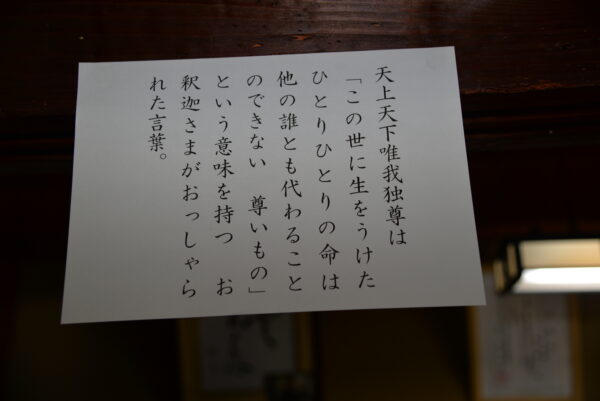 天上天下唯我独尊は
「この世に生をうけた
ひとりひとりの命は
他の誰とも代わること
のできない　尊いもの」
という意味を持つ　お
釈迦さまがおっしゃら
れた言葉。